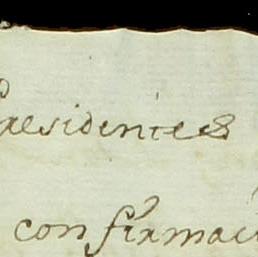 Presidentes
confirmaci